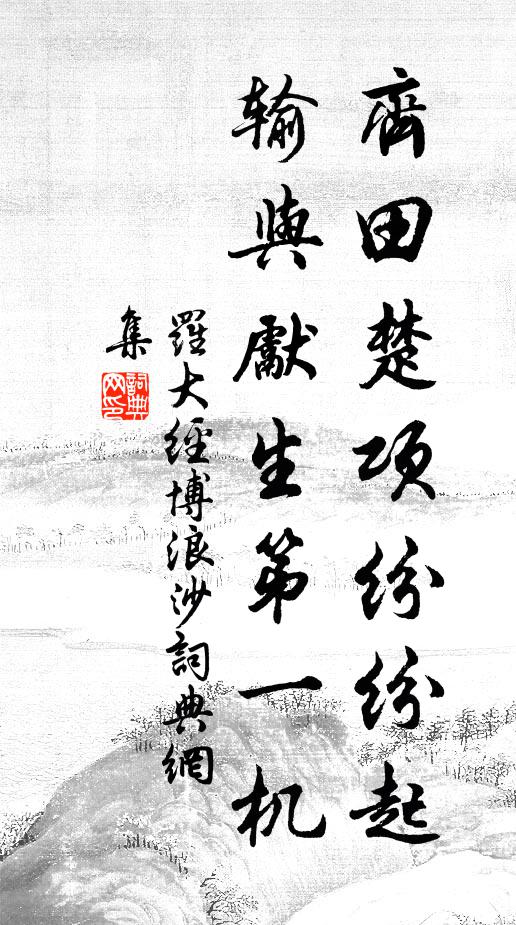 齊田楚项纷纷起
输與獻生第一机
羅大經博浪沙詞典網
集
詞典網印